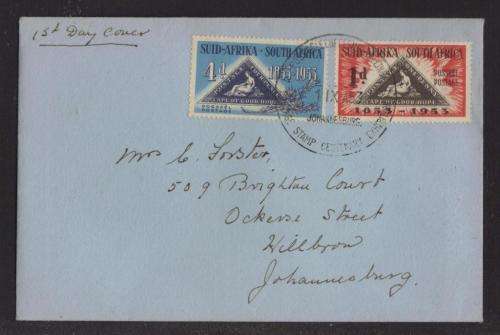 1st Day Cover
SUID-AFRIKA · SOUTH AFRICA
4d 1853-1953
CAPE OF GOOD HOPE
POSSEËL
POSTAGE
SUID-AFRIKA SOUTH AFRICA
1d
POSTAGE
POSSEËL
CAPE OF GOOD HOPE
1853 1953
1 IX 53
JOHANNESBURG
STAMP CENTENARY EXHIB
Mrs C. Forster,
509 Brighton Court
Ockerse Street
Hillbrow
Johannesburg.